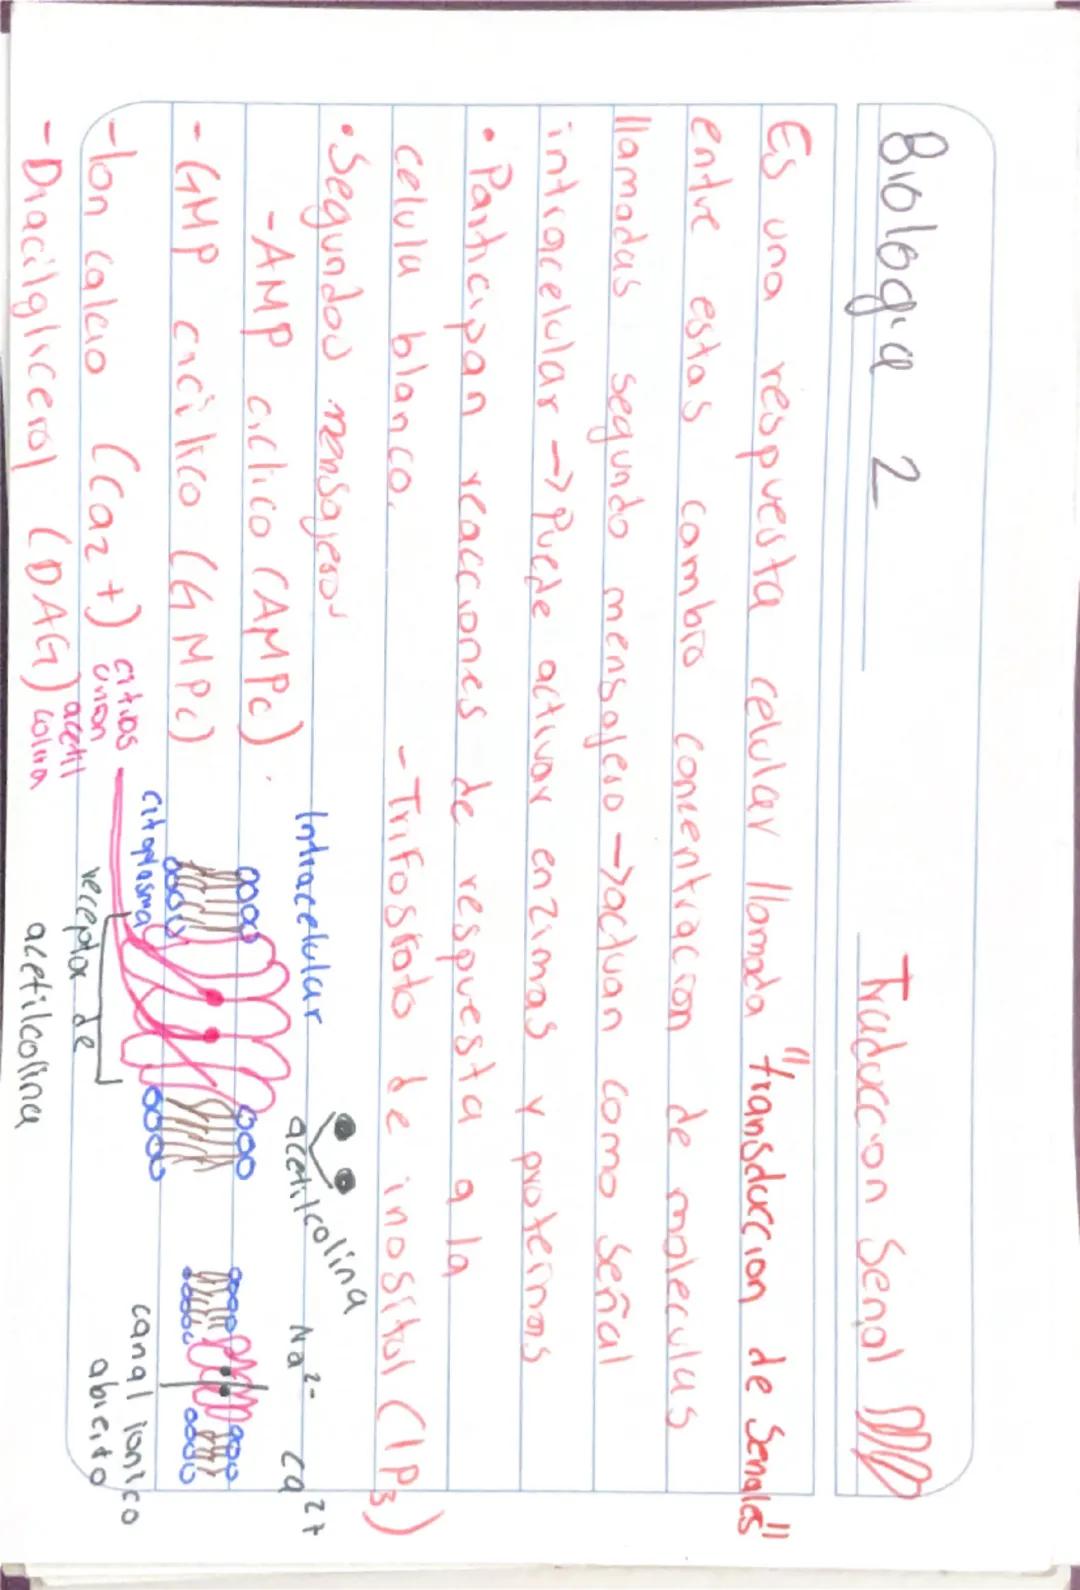 Biologia 2
Traduccion Señal
Es una respuesta celular llamada "transduccion de señales"
entre estas cambio concentracion de moleculas
llamadas segundo mensajero → actuan como señal
intracelular → Puede activar enzimas y proteinas
• Participan reacciones de respuesta a la
celula blanco.
- Trifosfato de inositol (IP3)
• Segundos mensajeros
- AMP ciclico (AMPc).
- GMP ciclico (GMPc)
- Ion calcio (Ca2+)
- Diacilglicerol (DAG)
citios
union
acetil
colina
Intracelular
citoplasma
receptor de
acetilcolina
acetilcolina
Na2-
Ca2+
canal ionico
abierto